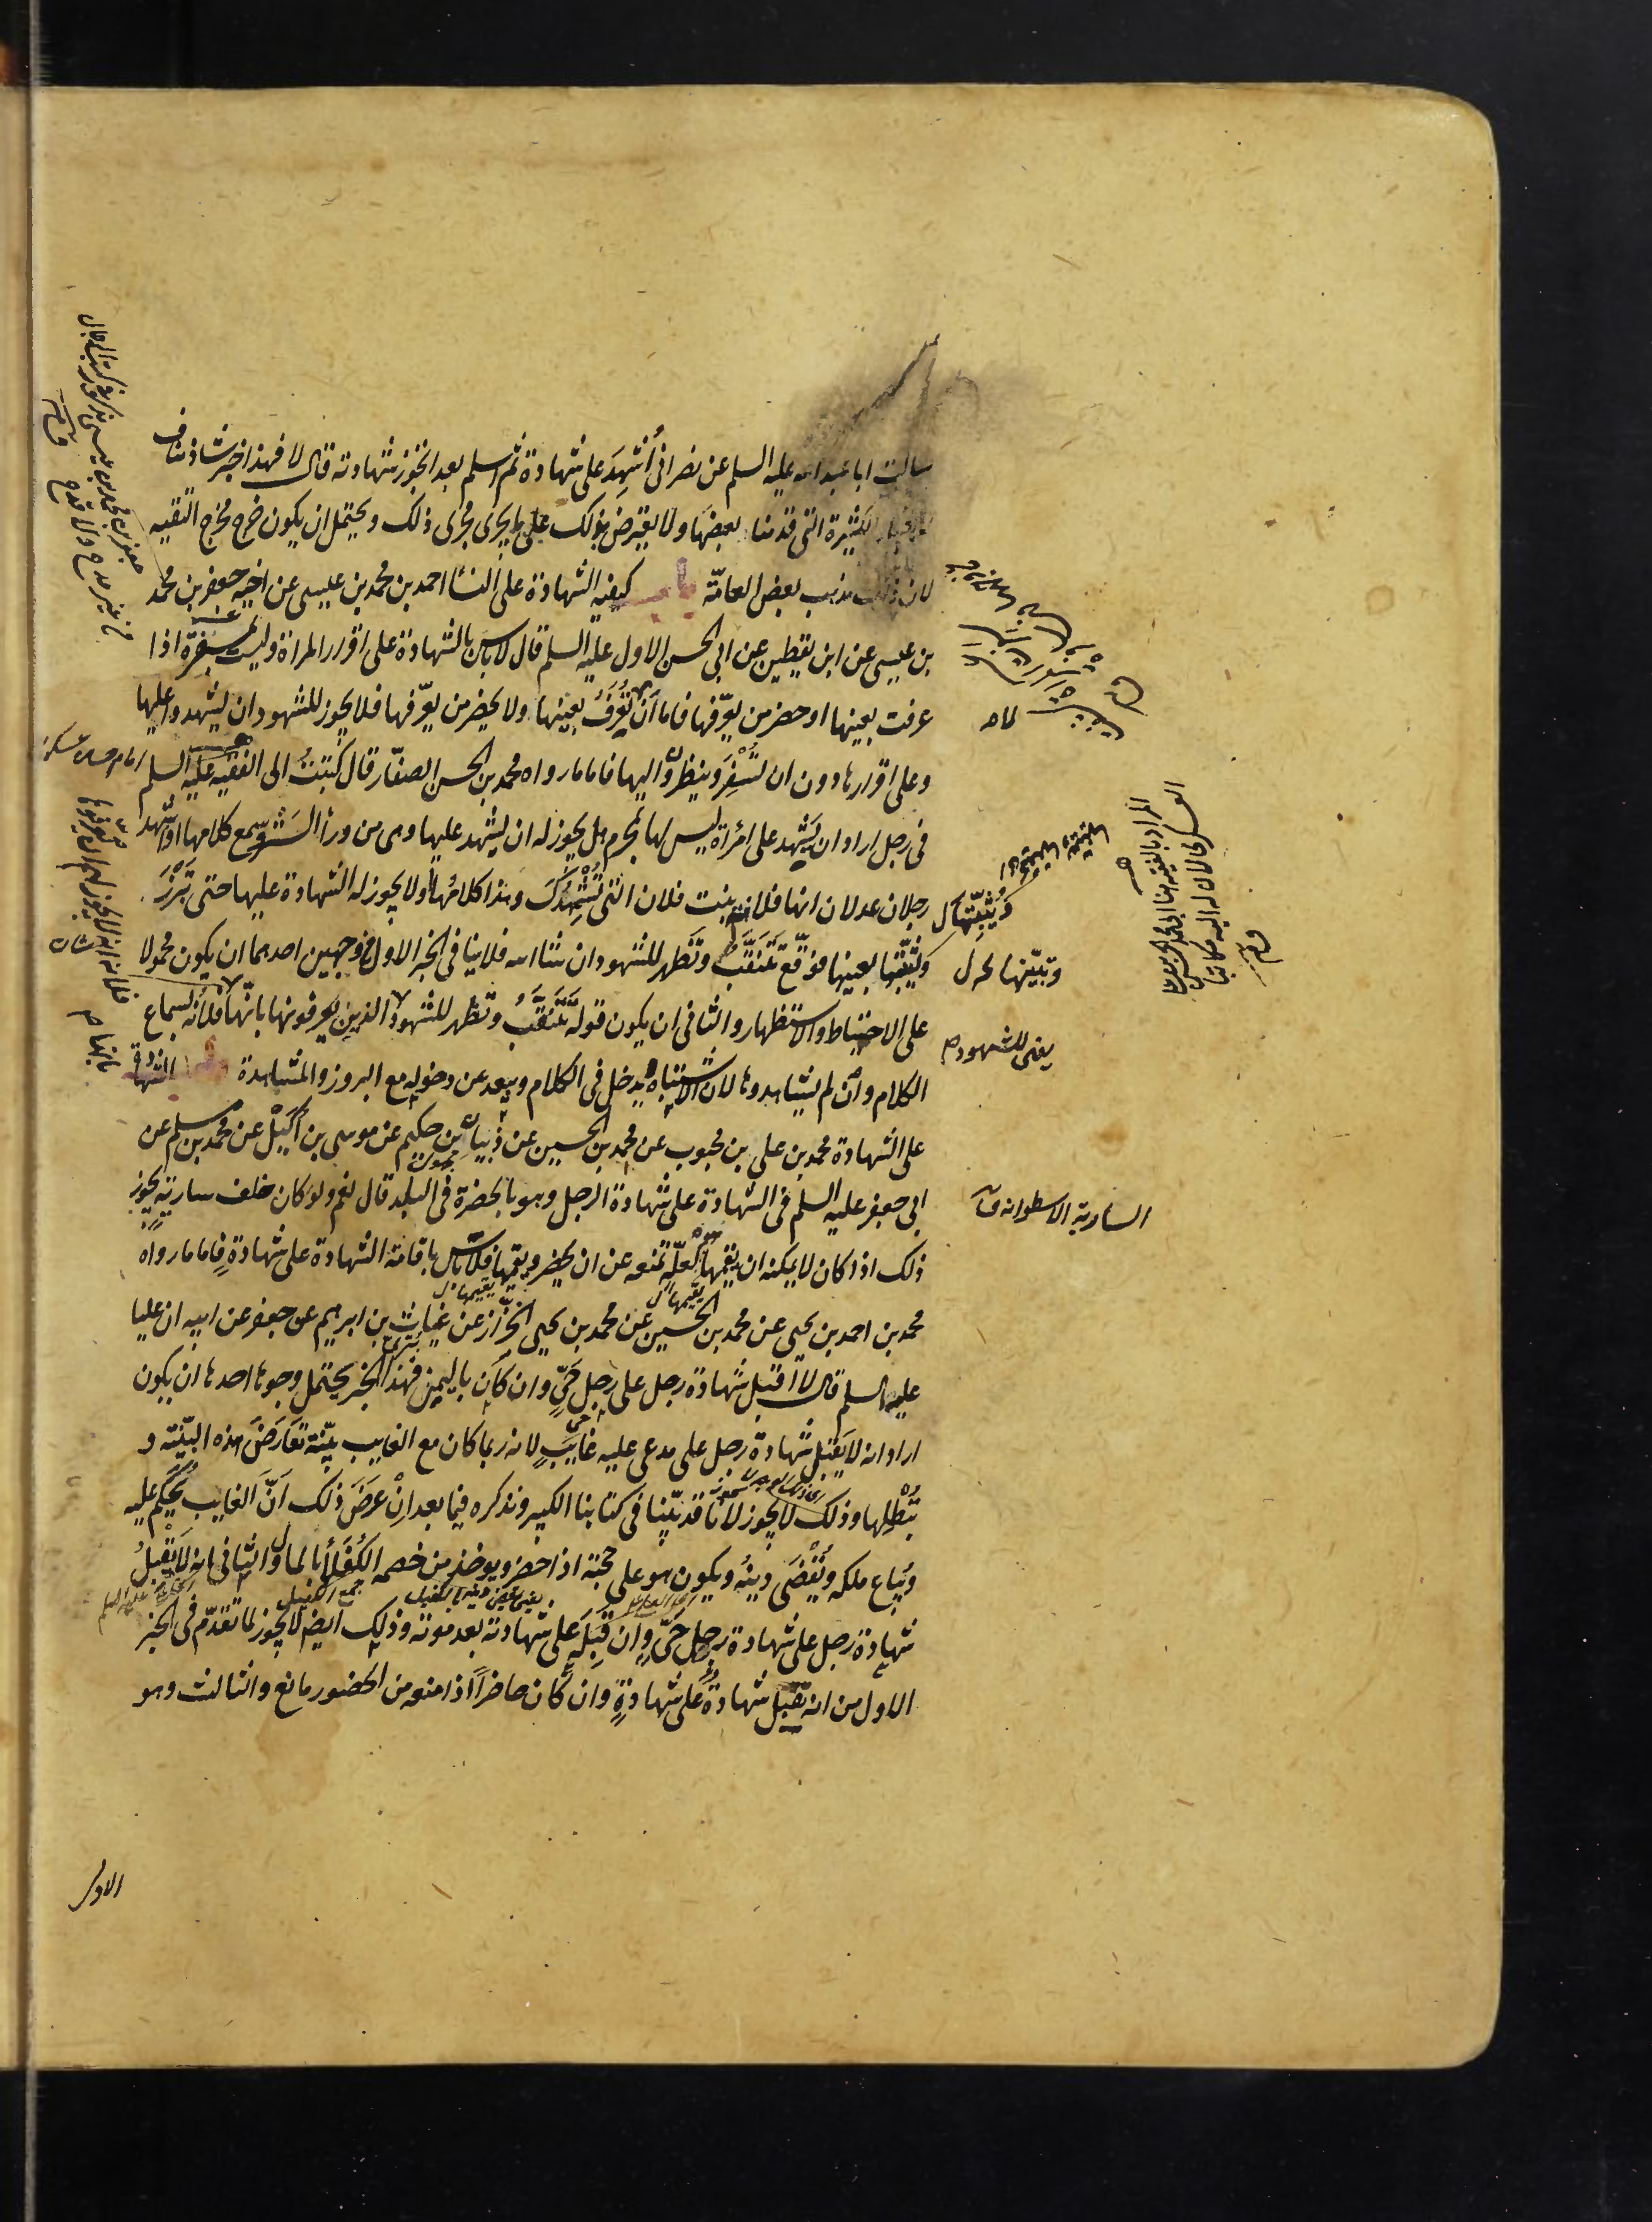 سالت ابا عبد الله عليه السلم عن نصرانى أُشهِدَ على شهادة ثم اسلم بعد اتجوز شهادته قال لا فهذا خبر شاذ مناف
للاخبار الكثيرة التى قدمنا بعضها ولا يعترض بذلك على ما يجرى مجرى ذلك ويحتمل ان يكون خرج مخرج التقيه
لان ذلك مذهب بعض العامّة باب كيفيه الشهادة على النسا احمد بن محمد بن عيسى عن اخيه جعفر بن محمد
بن عيسى عن ابن يقطين عن ابى الحسن الاول عليه السلم قال لا باس بالشهادة على اقرار المراة وليست بمسفرة اذا
عرفت بعينها او حضر من يعرّفها فاما ان تُعرَفُ بعينها ولا يحضر من يعرّفها فلا يجوز للشهود ان يشهدوا عليها
وعلى اقرارها دون ان تُسْفِرَ وينظرون اليها فاما ما رواه محمد بن الحسن الصفّار قال كتبتُ الى الفقيه عليه السلم
فى رجل اراد ان يَشهد على امرأة ليس لها بمحرم هل يجوز له ان يشهد عليها وهى من ورأ السَتر ويسمع كلامها اذا شهد
رجلان عدلان انها فلانه بنت فلان التى تُشْهِدُكَ وهذا كلامُها او لا يجوز له الشهادة عليها حتى تَبْرُزَ
وتُثبّتها بعينها فوقّع تَتَنَقَّبُ وتَظهر للشهود ان شا الله فلا ينافى الخبر الاول من وجهين احدهما ان يكون محمولا
على الاحتياط والاستظهار والثانى ان يكون قوله تَتَنَقَّبُ وتظهر للشهود الذين يعرفونها بانّها فلانه لسماع
الكلام وان لم يشاهدوها لان الاشتباه يدخل فى الكلام ويبعد عن دخوله مع البروز والمشاهدة باب الشهادة
على الشهادة محمد بن على بن محبوب عن محمد بن الحسين عن ذبيان بن حكيم عن موسى بن أُكَيْل عن محمد بن مسلم عن
ابى جعفر عليه السلم فى الشهادة على شهادة الرجل وهو بالحضرة فى البلد قال نعم ولو كان خلف سارية يجوز
ذلك اذا كان لا يمكنه ان يقيمها لعلّةٍ تمنعه عن ان يحضر ويقيمها فلا باس باقامة الشهادة على شهادةٍ فاما ما رواه
محمد بن احمد بن يحيى عن محمد بن الحسين عن محمد بن يحيى الخزّاز عن غياث بن ابرهيم عن جعفر عن ابيه ان عليا
عليه السلم قال لا اقبل شهادة رجل على رجل حَىٍّ وان كان باليمن فهذا الخبر يحتمل وجوها احدها ان يكون
اراد انه لا يَقبَل شهادة رجل على مدعى عليه غايبٍ لانه ربما كان مع الغايب بيّنة تعارضُ هذه البيّنة و
تُبْطِلها وذلك لا يجوز لانا قد بيّنا فى كتابنا الكبير ونذكره فيما بعد اِنْ عرضَ ذلك اَنّ الغايب يُحكَم عليه
ويُباع ملكه ويُقْضَى دينُه ويكون هو على حجته اذا حضر ويوخذ من خصمه الكُفَلأ بالمال والثانى انه لا يَقْبَلُ
شهادة رجل على شهادة رجل حَىٍّ وان قَبِلَه على شهادته بعد موته وذلك ايضا لا يجوز لما تقدّم فى الخبر
الاول من انه يقبل شهادةٌ على شهادةٍ وان كان حاضراً اذا منعه من الحضور مانع والثالث وهو
وتبيّنها
يعنى للشهود
السارية الاسطوانه
المراد بالفقيه هنا ابى محمد الحسن
العسكرى لان له اليه مكاتبا
يقيمها
جمع الكفيل
الاول